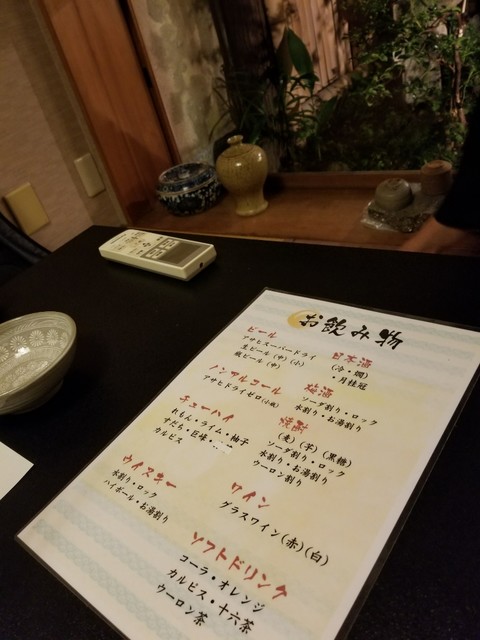 お飲み物
ビール
アサヒスーパードライ
生ビール(中)(小)
瓶ビール(中)
ノンアルコール
アサヒドライゼロ(小瓶)
チューハイ
れもん・ライム・柚子
すだち・巨峰・
カルピス
ウイスキー
水割り・ロック
ハイボール・お湯割り
日本酒
(冷・燗)
月桂冠
梅酒
ソーダ割り・ロック
水割り・お湯割り
焼酎
(麦)(芋)(黒糖)
ソーダ割り・ロック
水割り・お湯割り
ウーロン割り
ワイン
グラスワイン(赤)(白)
ソフトドリンク
コーラ・オレンジ
カルピス・十六茶
ウーロン茶